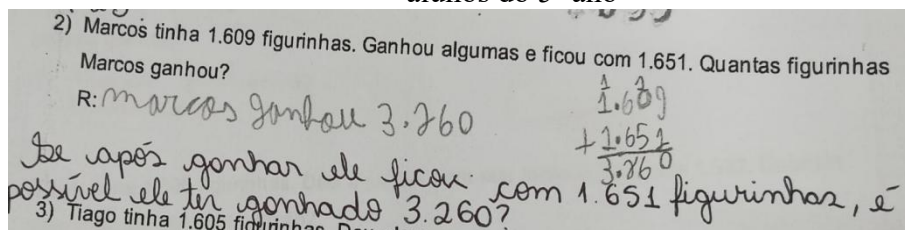 alunos do 5º ano
2) Marcos tinha 1.609 figurinhas. Ganhou algumas e ficou com 1.651. Quantas figurinhas
Marcos ganhou?
R: marcos ganhou 3.260
1.609
+ 1.651
3.260
Se após ganhar ele ficou com 1.651 figurinhas, é
possível ele ter ganhado 3.260?
3) Tiago tinha 1.605 figurinhas.